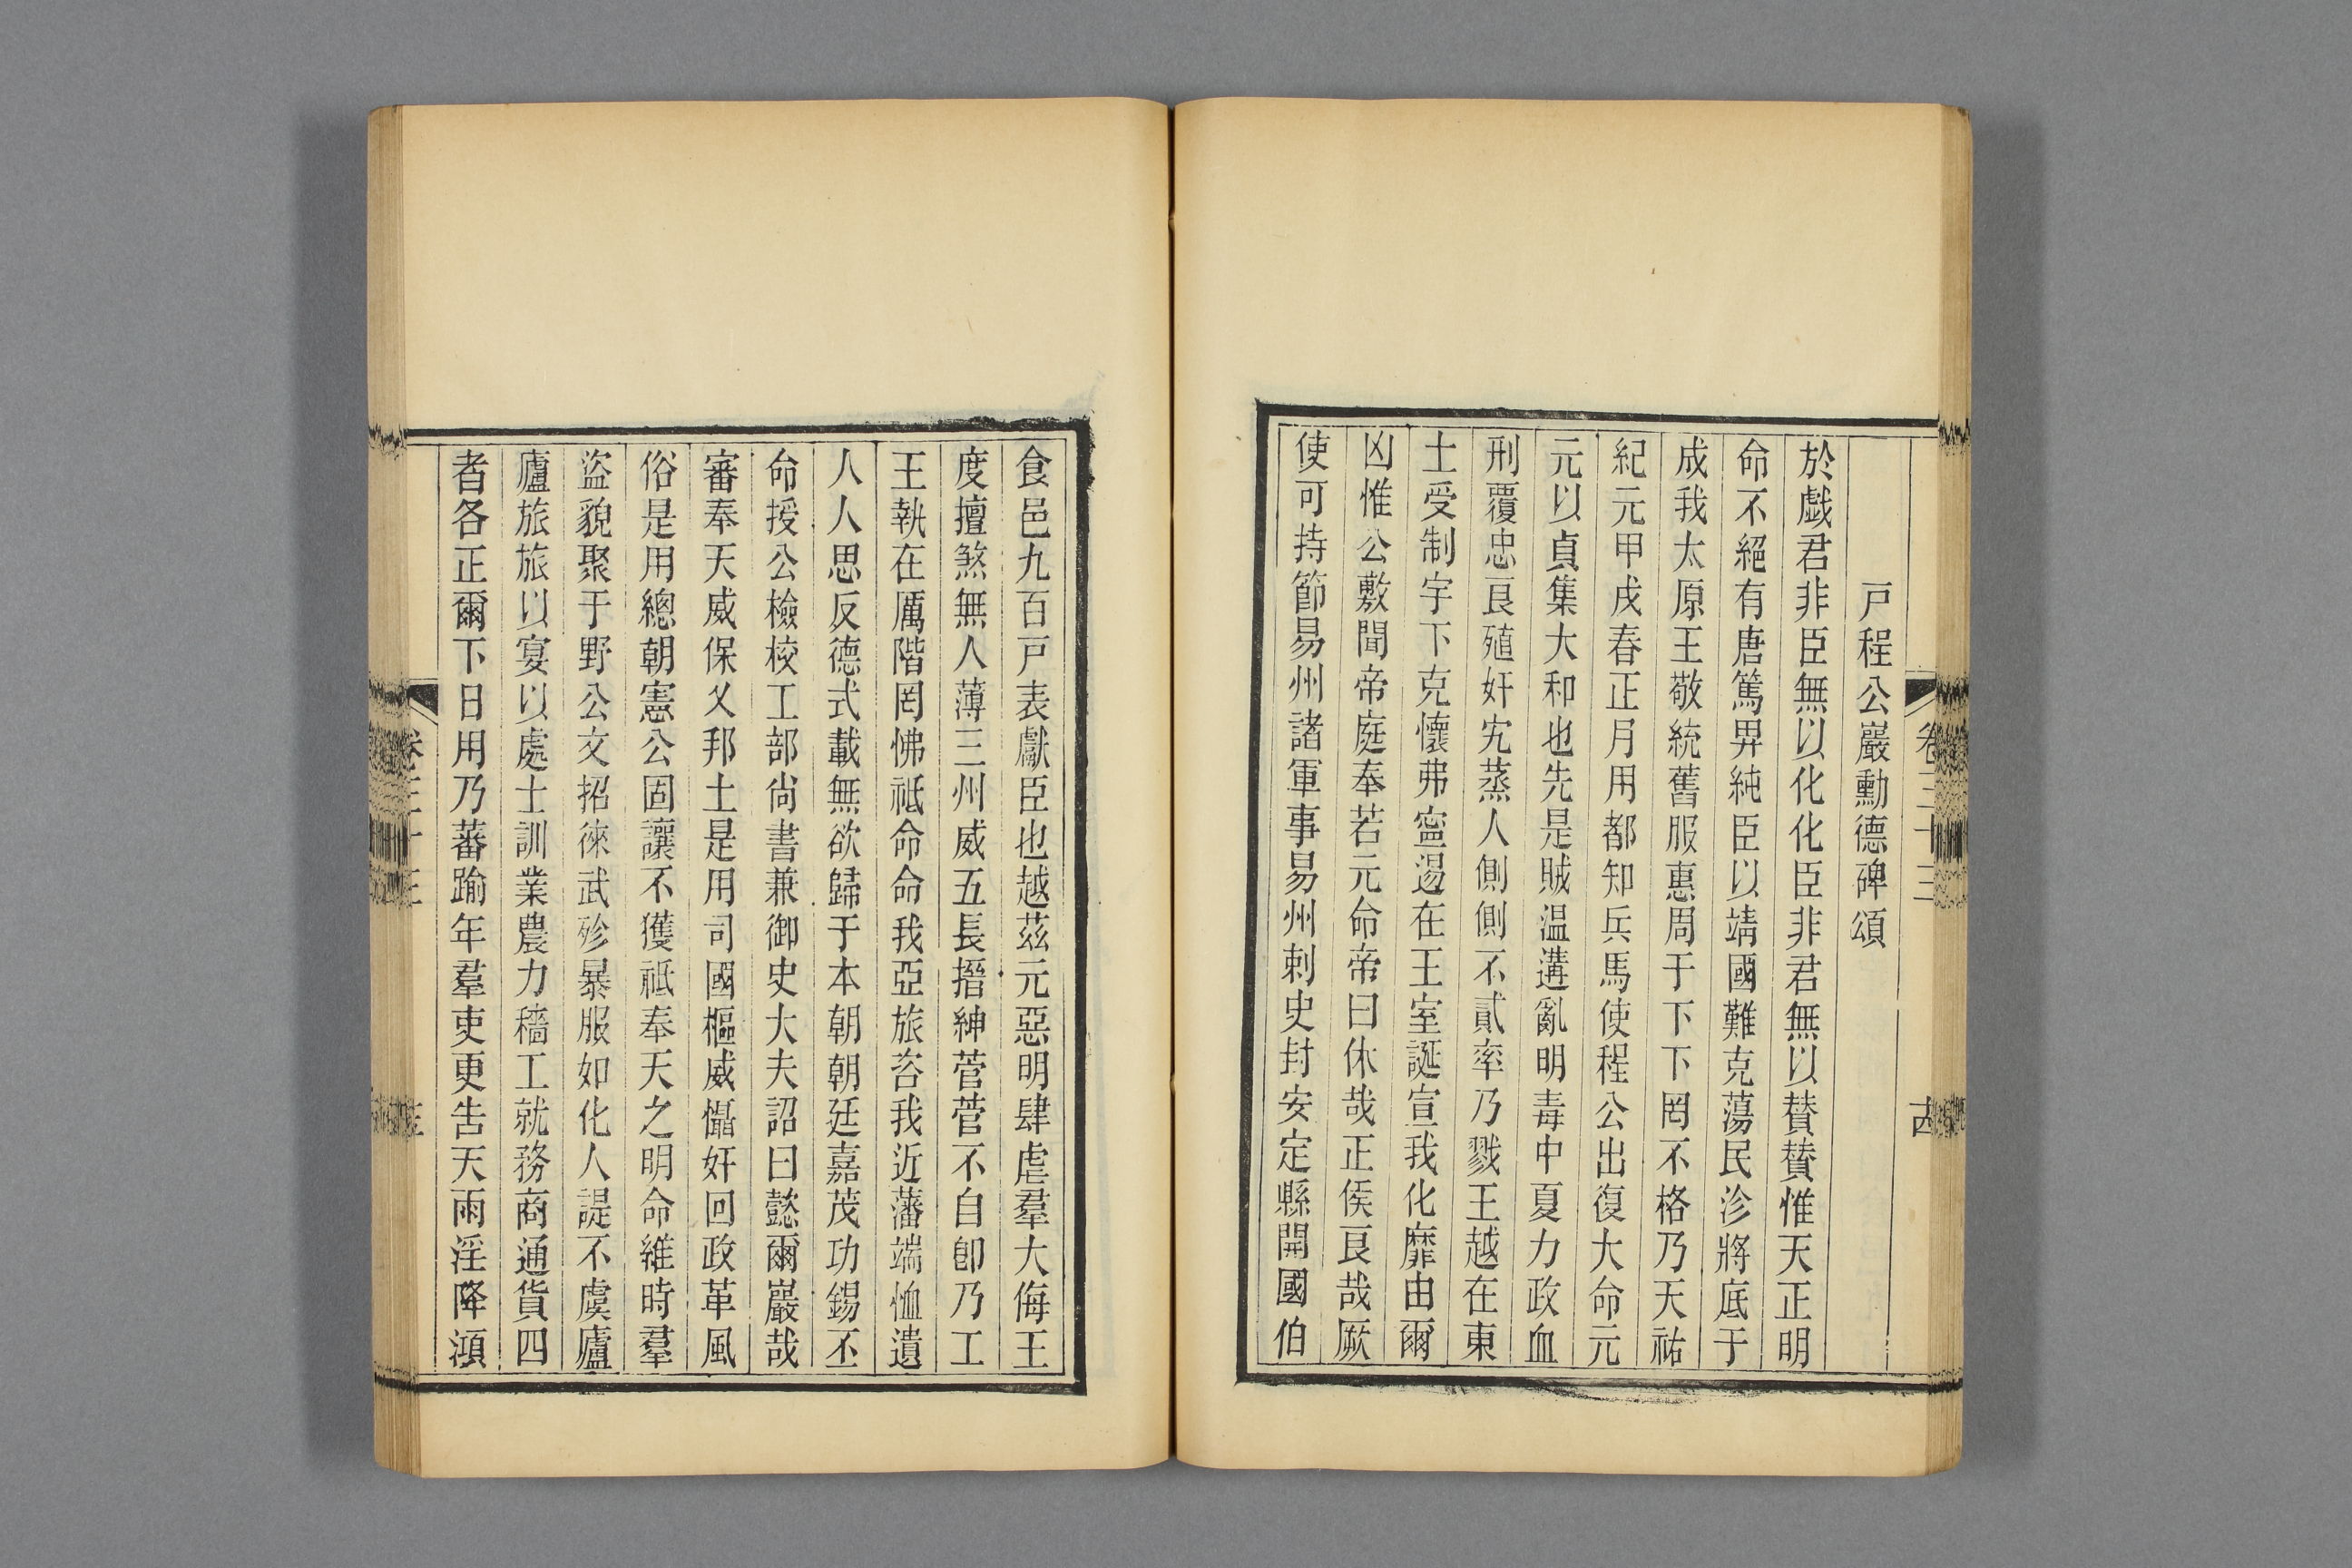 戸程公巖勳德碑頌
於戯君非臣無以化化臣非君無以賛賛惟天正明
命不絕有唐篤畀純臣以靖國難克蕩民沴將底于
成我太原王敬統舊服惠周于下下罔不格乃天祐
紀元甲戌春正月用都知兵馬使程公出復大命元
元以貞集大和也先是賊温遘亂明毒中夏力政血
刑覆忠良殖奸宄蒸人側側不貳率乃戮王越在東
土受制宇下克懷弗寍逷在王室誕宣我化靡由爾
凶惟公敷聞帝庭奉若元命帝曰休哉正侯良哉厥
使可持節易州諸軍事易州刺史封安定縣開國伯
食邑九百戸表獻臣也越茲元惡明肆虐羣大侮王
度擅煞無人薄三州威五長搢紳菅菅不自卽乃工
王執在厲階罔怫祗命命我亞旅咨我近藩端恤遺
人人思反德式載無欲歸于本朝朝廷嘉茂功錫丕
命授公檢校工部尙書兼御史大夫詔曰懿爾巖哉
審奉天威保乂邦土是用司國樞威懾奸回政革風
俗是用總朝憲公固讓不獲祗奉天之明命維時羣
盜貌聚于野公文招徠武殄暴服如化人諟不虞廬
廬旅旅以宴以處士訓業農力穡工就務商通貨四
者各正爾下日用乃蕃踰年羣吏更告天雨淫降澒